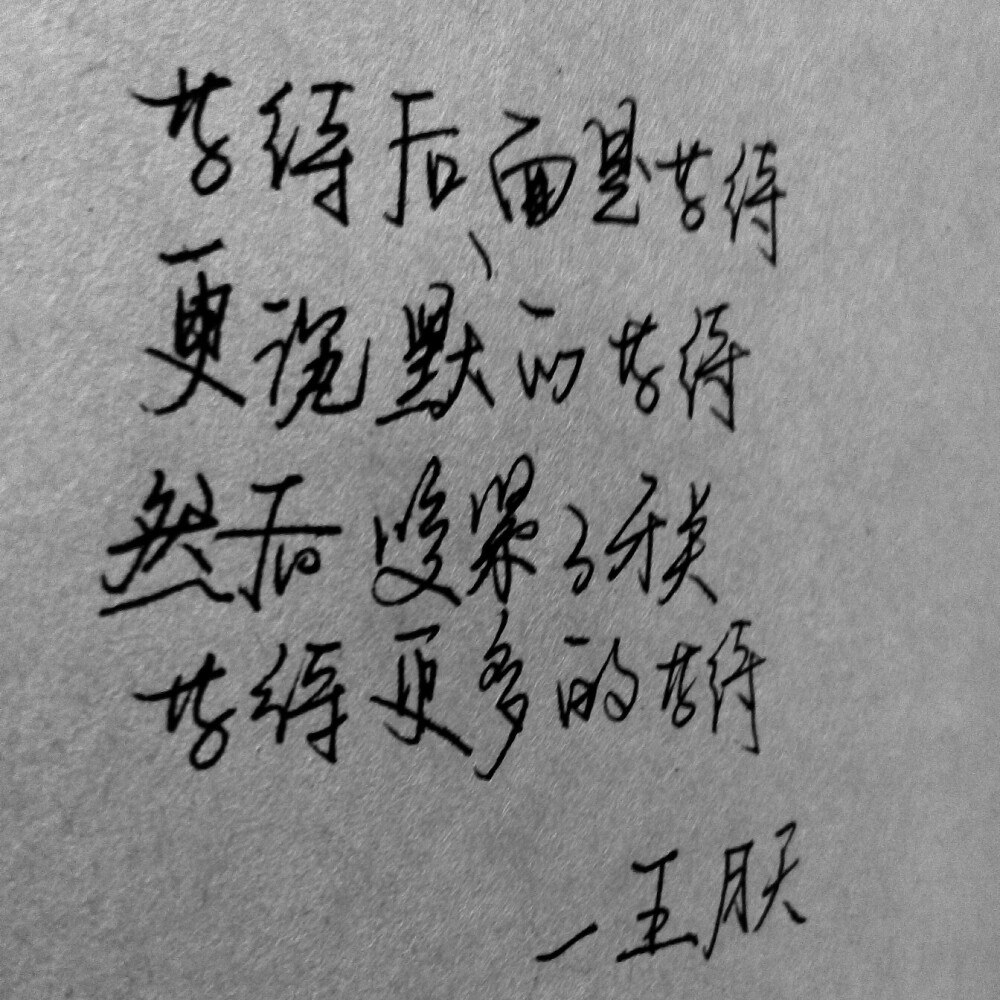 等待后面是等待
更沉默的等待
然后咬紧了牙关
等待更多的等待
—王朕